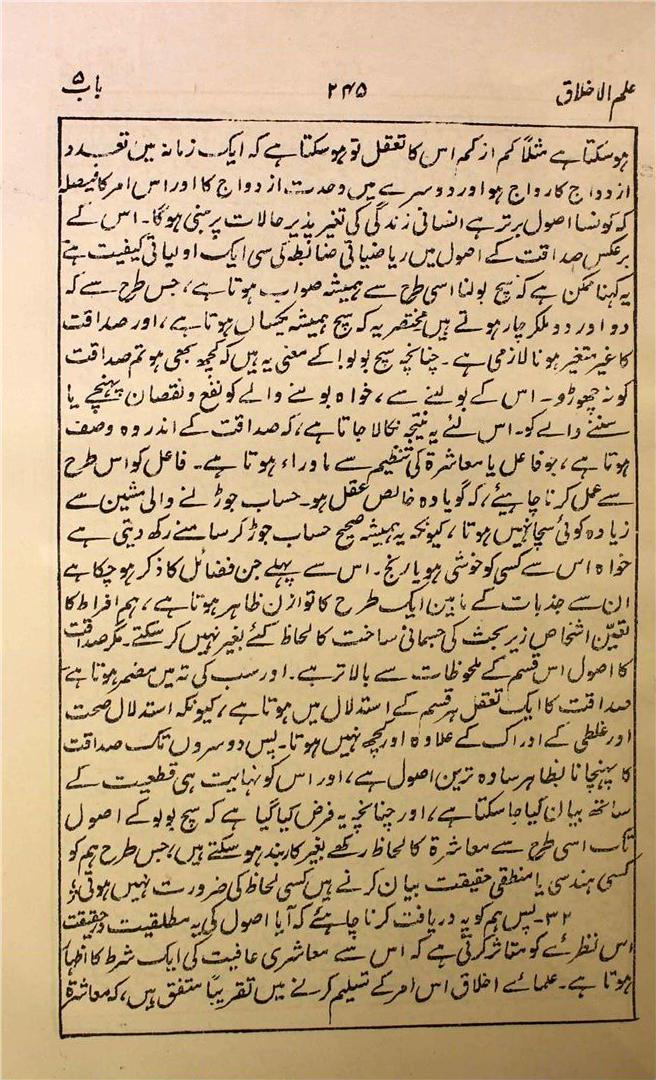 علم الاخلاق ۲۴۵ باب ۵
ہو سکتا ہے مثلاً کم از کم اس کا تعقل تو ہو سکتا ہے کہ ایک زمانہ میں تعدد
ازدواج کا رواج ہو اور دوسرے میں وحدت ازدواج کا اور اس امر کا فیصلہ
کہ کونسا اصول برتر ہے انسانی زندگی کی تغیر پذیر حالات پر مبنی ہوگا۔ اس کے
برعکس صداقت کے اصول میں ریاضیاتی ضابطہ کی سی ایک اولیاتی کیفیت ہے
یہ کہنا ممکن ہے کہ سچ بولنا اسی طرح سے ہمیشہ صواب ہوتا ہے، جس طرح سے کہ
دو اور دو ملکر چار ہوتے ہیں مختصر یہ کہ سچ ہمیشہ یکساں ہوتا ہے، اور صداقت
کا غیر متغیر ہونا لازمی ہے۔ چنانچہ سچ بولو! کے معنی یہ ہیں کہ کچھ بھی ہو تم صداقت
کو نہ چھوڑو۔ اس کے بولنے سے، خواہ بولنے والے کو نفع و نقصان پہنچے یا
سننے والے کو۔ اس لئے یہ نتیجہ نکالا جاتا ہے، کہ صداقت کے اندر وہ وصف
ہوتا ہے، جو فاعل یا معاشرۃ کی تنظیم سے ماوراء ہوتا ہے۔ فاعل کو اس طرح
سے عمل کرنا چاہیئے، کہ گویا وہ خالص عقل ہو۔ حساب جوڑنے والی مشین سے
زیادہ کوئی سچا نہیں ہوتا، کیونکہ یہ ہمیشہ صحیح حساب جوڑ کر سامنے رکھ دیتی ہے
خواہ اس سے کسی کو خوشی ہو یا رنج۔ اس سے پہلے جن فضائل کا ذکر ہو چکا ہے
ان سے جذبات کے مابین ایک طرح کا توازن ظاہر ہوتا ہے، ہم افراط کا
تعیّن اشخاص زیر بحث کی جسمانی ساخت کا لحاظ کئے بغیر نہیں کر سکتے۔ مگر صداقت
کا اصول اس قسم کے ملحوظات سے بالاتر ہے۔ اور سب کی تہ میں مضمر ہوتا ہے
صداقت کا ایک تعقل ہر قسم کے استدلال میں ہوتا ہے، کیونکہ استدلال صحت
اور غلطی کے ادراک کے علاوہ اور کچھ نہیں ہوتا۔ پس دوسروں تک صداقت
کا پہنچانا بظاہر سادہ ترین اصول ہے، اور اس کو نہایت ہی قطعیت کے
ساتھ بیان کیا جا سکتا ہے، اور چنانچہ یہ فرض کیا گیا ہے کہ سچ بولو کے اصول
تک اسی طرح سے معاشرۃ کا لحاظ رکھے بغیر کاربند ہو سکتے ہیں، جس طرح ہم کو
کسی ہندسی یا منطقی حقیقت بیان کرنے میں کسی لحاظ کی ضرورت نہیں ہوتی؛
۳۲۔ پس ہم کو یہ دریافت کرنا چاہئے کہ آیا اصول کی یہ مطلقیت درحقیقت
اس نظرئے کو متاثر کرتی ہے کہ اس سے معاشری عافیت کی ایک شرط کا اظہار
ہوتا ہے۔ علمائے اخلاق اس امر کے تسلیم کرنے میں تقریباً متفق ہیں، کہ معاشرۃ